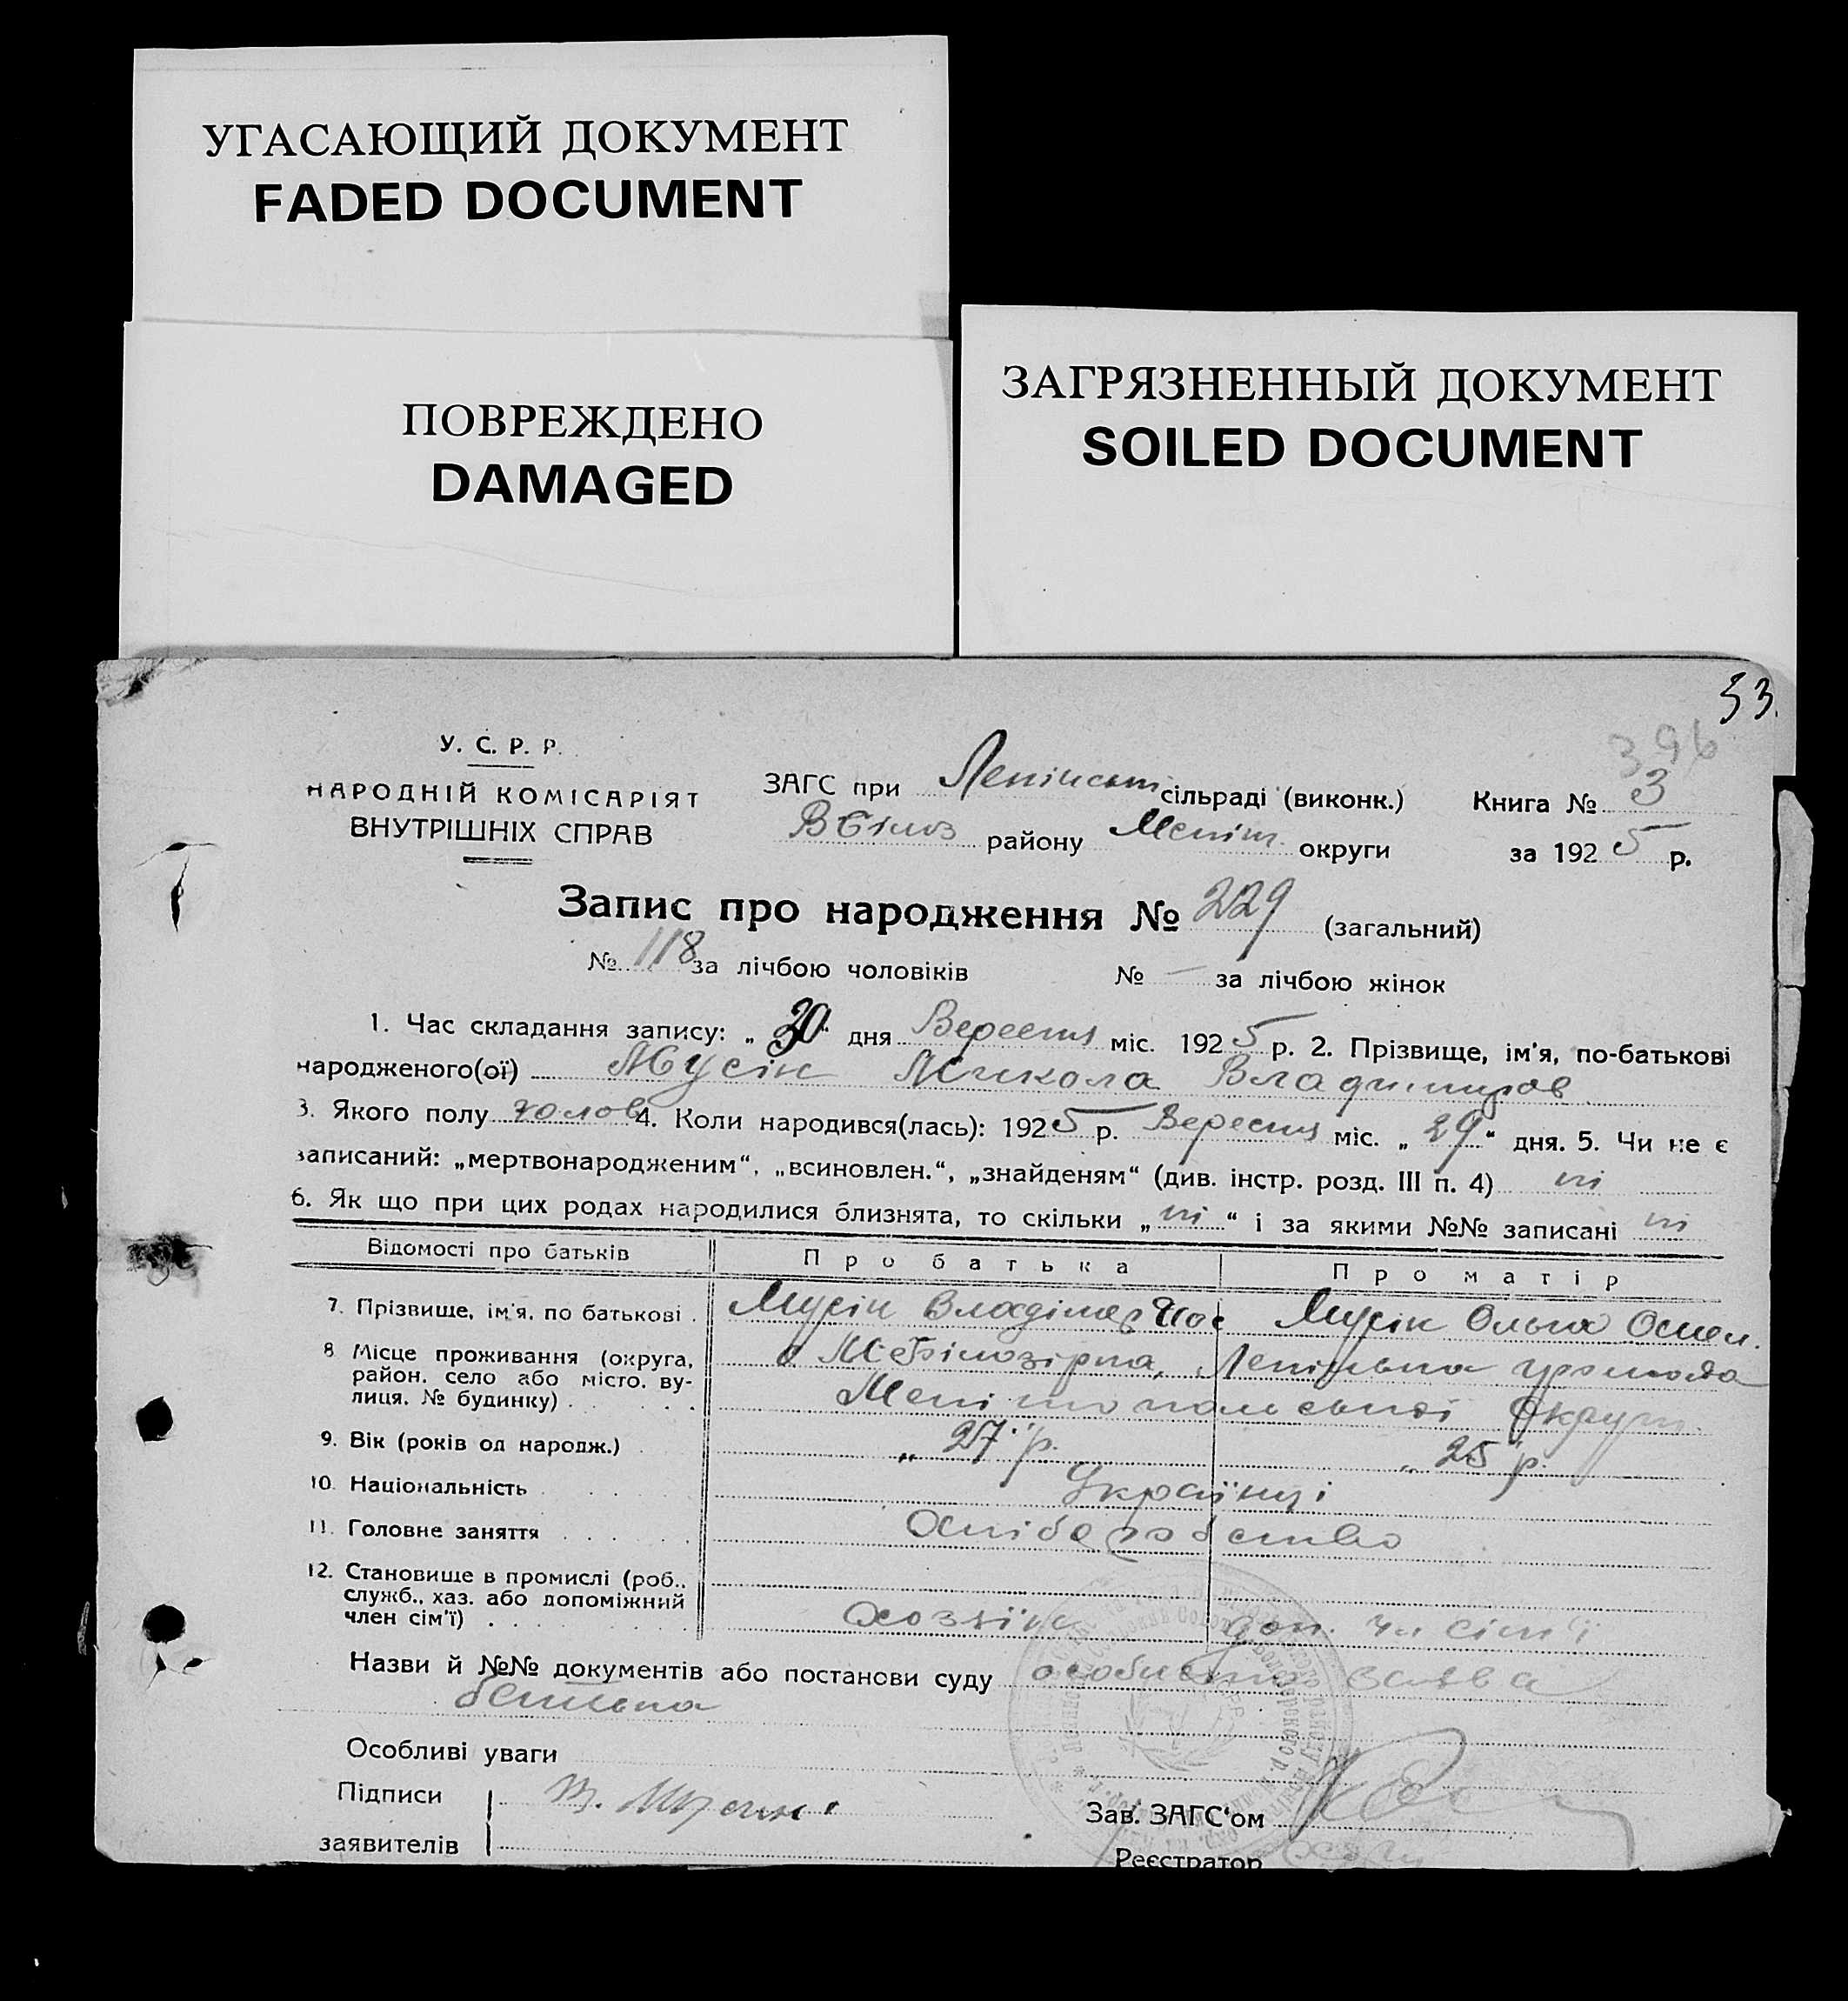 УГАСАЮЩИЙ ДОКУМЕНТ
FADED DOCUMENT
ПОВРЕЖДЕНО
DAMAGED
ЗАГРЯЗНЕННЫЙ ДОКУМЕНТ
SOILED DOCUMENT
53.
396
У. С. Р. Р.
НАРОДНІЙ КОМІСАРІЯТ
ВНУТРІШНІХ СПРАВ
ЗАГС при Ленінськ сільраді (виконк.) Книга № 3
району Меліт. округи за 192 5 р.
Запис про народження № 229 (загальний)
№ 118 за лічбою чоловіків № — за лічбою жінок
1. Час складання запису: „ 30 “ дня Вересня міс. 192 5 р. 2. Прізвище, ім'я, по-батькові
народженого(ої) Мусін Микола Владимиров
3. Якого полу чолов 4. Коли народився(лась): 192 5 р. Вересня міс. „ 29 “ дня. 5. Чи не є
записаний: „мертвонародженим“, „всиновлен.“, „знайденям“ (див. інстр. розд. III п. 4) ні
6. Як що при цих родах народилися близнята, то скільки „ ні “ і за якими №№ записані ні
Відомості про батьків Про батька Про матір
7. Прізвище, ім'я, по батькові . Мусін Владімер Мусін Ольга
8. Місце проживання (округа, Ленінська громада
район, село або місто, ву-
лиця, № будинку) . Мелітопольської Округи
9. Вік (років од народж.) „ 27 р. „ 25 р.
10. Національність Українці
11. Головне заняття
12. Становище в промислі (роб.,
служб., хаз. або допоміжний
член сім'ї) . Хозяїн доп. чл сім'ї
Назви й №№ документів або постанови суду особиста заява
батька
Особливі уваги
Підписи
заявителів
Зав. ЗАГС'ом
Реєстратор